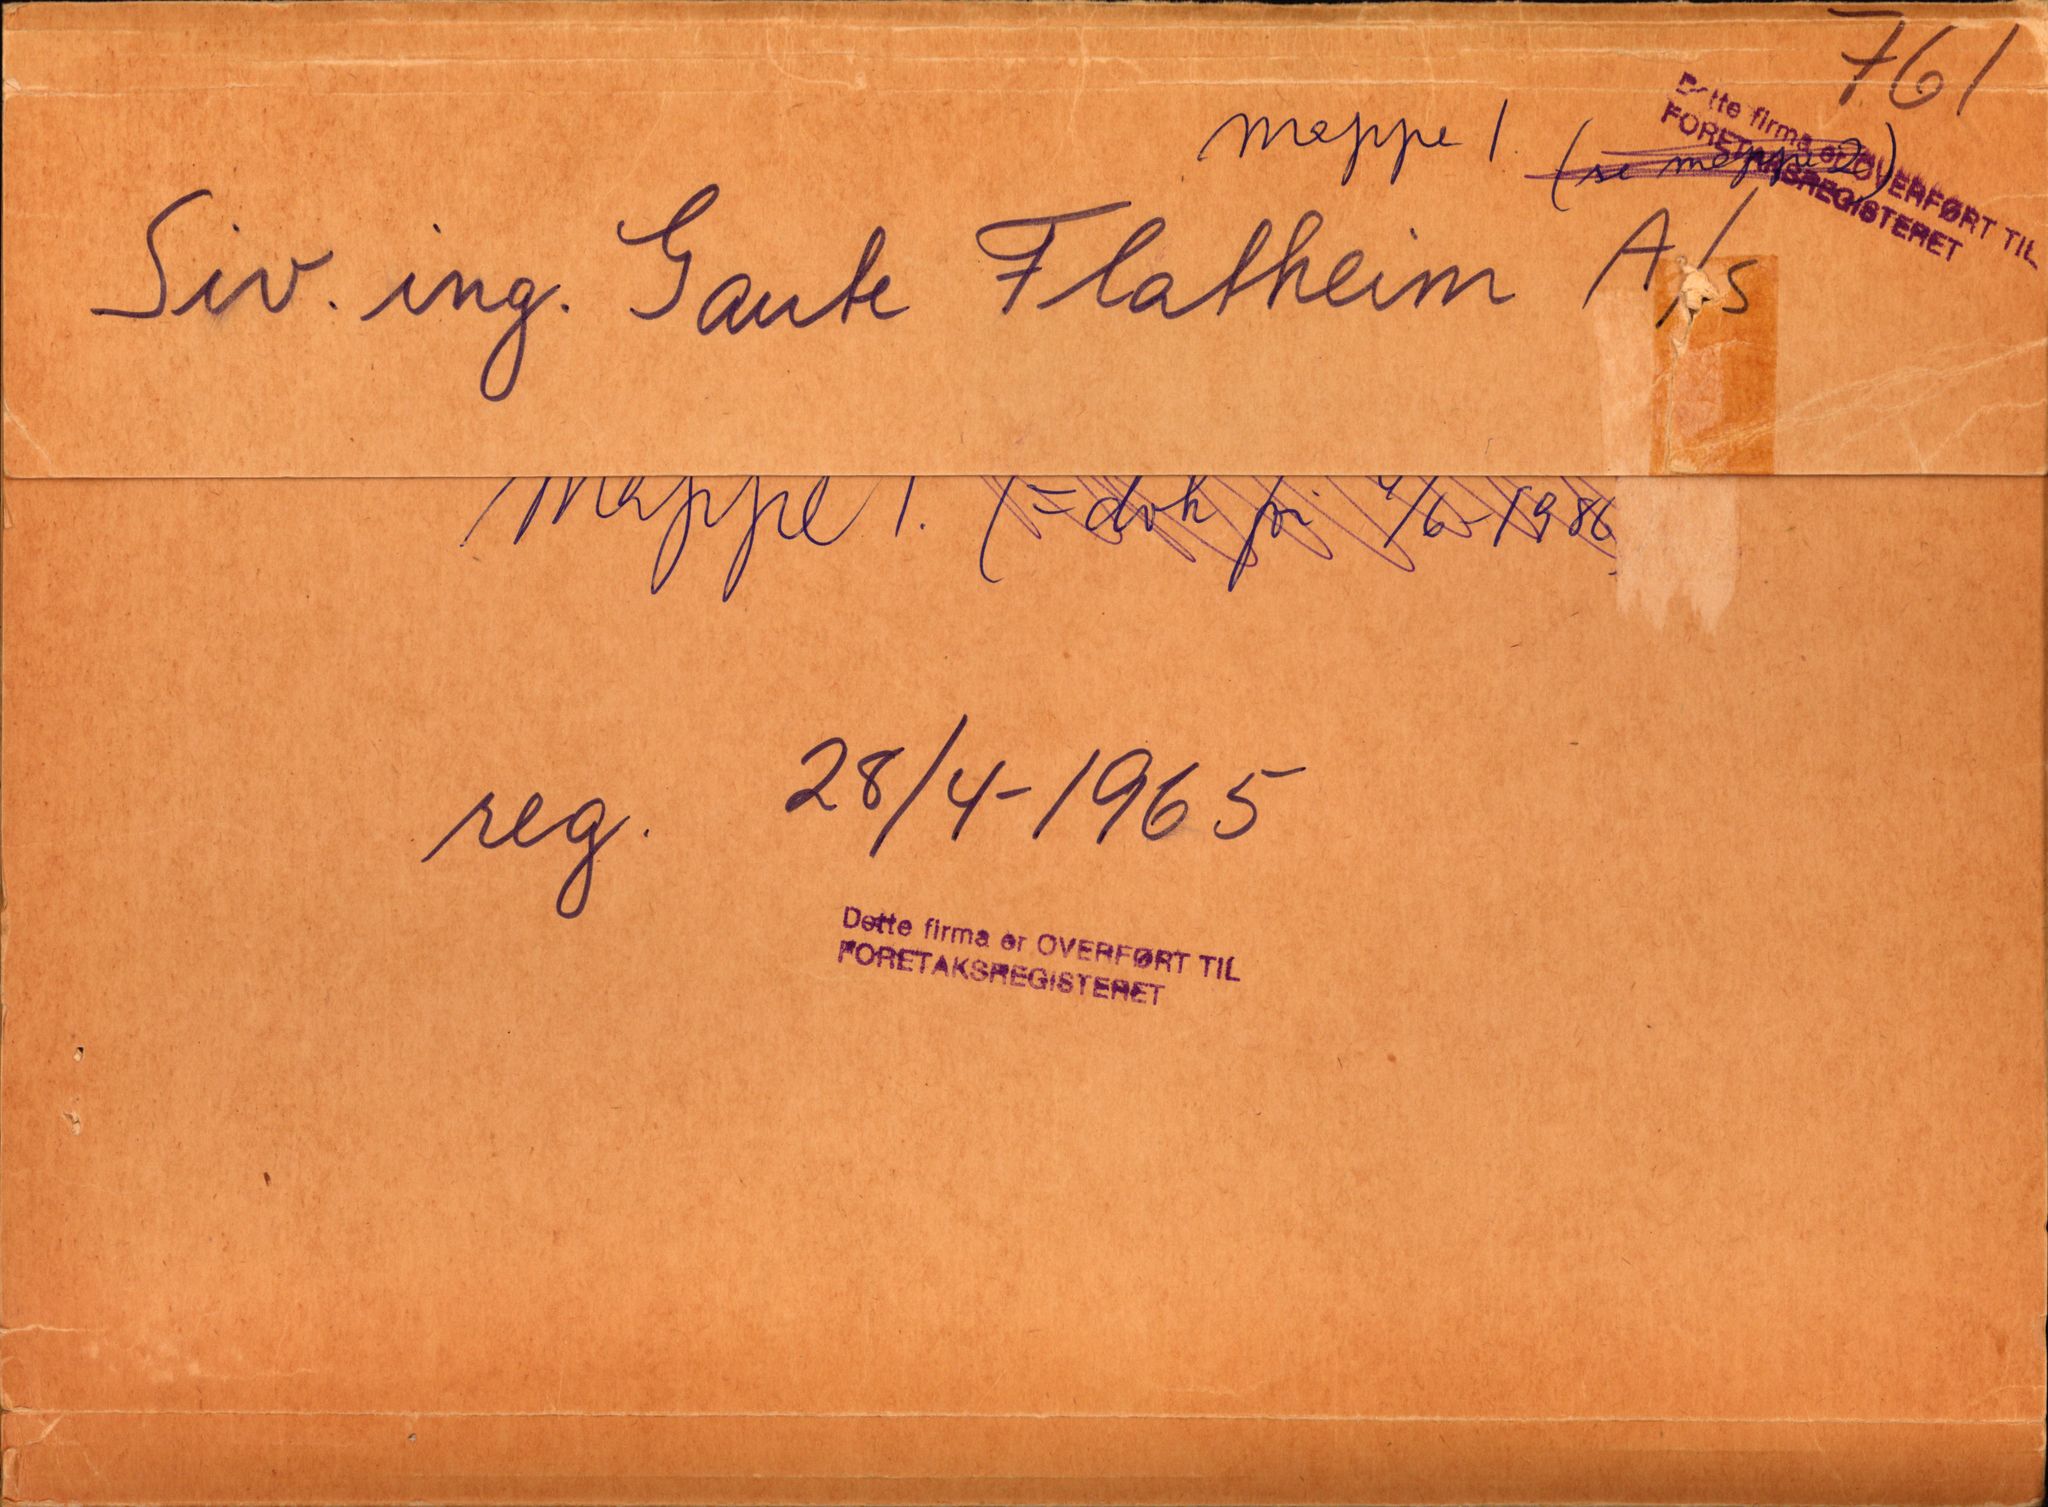 761
mappe 1. (se mappe 2)
Dette firma er OVERFØRT TIL
FORETAKSREGISTERET
Siv. ing. Gaute Flatheim A/s
Mappe 1. (= dok før 4/6-1986
reg. 28/4-1965
Dette firma er OVERFØRT TIL
FORETAKSREGISTERET